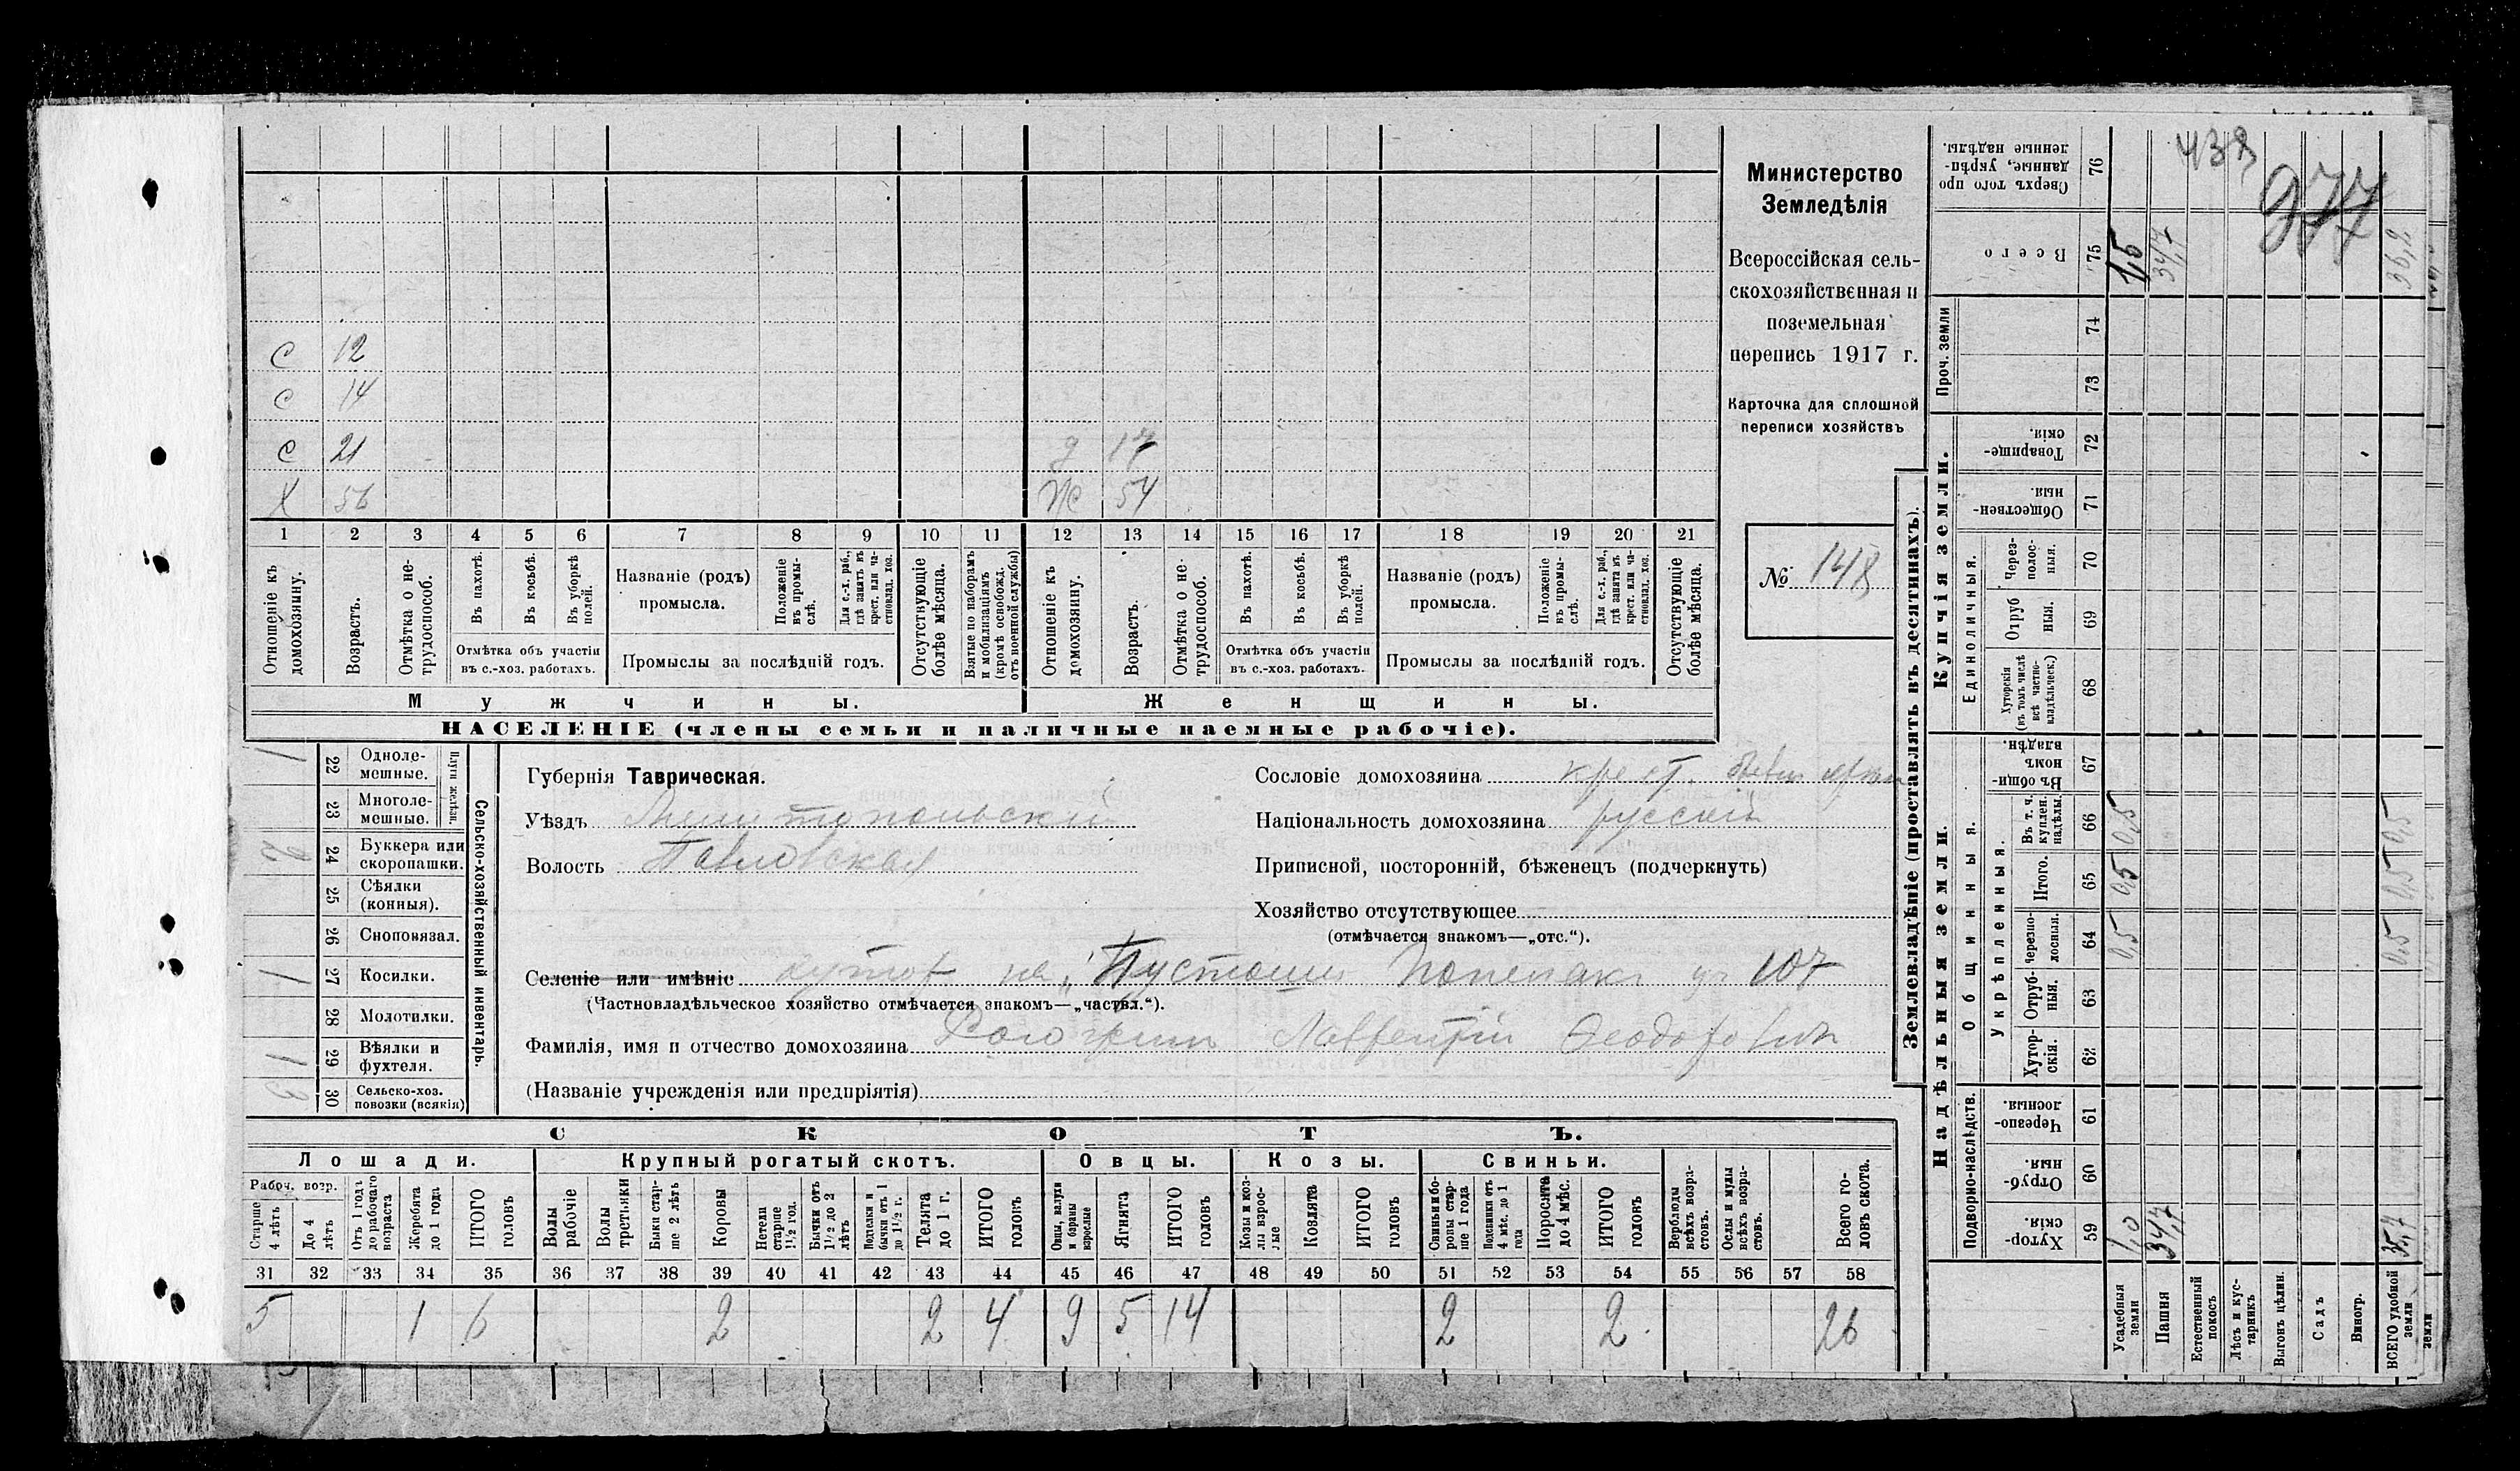 438
977
Министерство
Земледѣлія
Всероссійская сель-
скохозяйственная и
поземельная
перепись 1917 г.
Карточка для сплошной
переписи хозяйствъ
№ 148
С 12
С 14
С 21 д 17
Х 56 Ж 54
1 2 3 4 5 6 7 8 9 10 11 12 13 14 15 16 17 18 19 20 21
Отношеніе къ домохозяину.
Возрастъ.
Отмѣтка о не-трудоспособ.
Въ пахотѣ.
Въ косьбѣ.
Въ уборкѣ полей.
Отмѣтка объ участіи
въ с.-хоз. работахъ.
Названіе (родъ)
промысла.
Положеніе въ промы-слѣ.
Для с.-х. раб., гдѣ занятъ въ крест. или ча-стновлад. хоз.
Промыслы за послѣдній годъ.
Отсутствующіе болѣе мѣсяца.
Взятые по наборамъ и мобилизаціямъ (кромѣ освобожд. отъ военной службы)
Отношеніе къ домохозяину.
Возрастъ.
Отмѣтка о не-трудоспособ.
Въ пахотѣ.
Въ косьбѣ.
Въ уборкѣ полей.
Отмѣтка объ участіи
въ с.-хоз. работахъ.
Названіе (родъ)
промысла.
Положеніе въ промы-слѣ.
Для с.-х. раб., гдѣ занята въ крест. или ча-стновлад. хоз.
Промыслы за послѣдній годъ.
Отсутствующіе болѣе мѣсяца.
Мужчины. Женщины.
НАСЕЛЕНІЕ (члены семьи и наличные наемные рабочіе).
Сельско-хозяйственный инвентарь.
Плуги желѣзн.
1 22 Одноле-мешные.
23 Многоле-мешные.
2 24 Буккера или скоропашки.
25 Сѣялки (конныя).
26 Сноповязал.
1 27 Косилки.
28 Молотилки.
1 29 Вѣялки и фухтеля.
3 30 Сельско-хоз. повозки (всякія)
Губернія Таврическая.
Уѣздъ Мелитопольскій
Волость Павловская
Селеніе или имѣніе хутор на „Пустоши Попелак уч 107
(Частновладѣльческое хозяйство отмѣчается знакомъ—„частвл.“).
Фамилія, имя и отчество домохозяина Лаврентій Феодорович
(Названіе учрежденія или предпріятія)
Сословіе домохозяина крест.
Національность домохозяина русскій
Приписной, посторонній, бѣженец (подчеркнуть)
Хозяйство отсутствующее
(отмѣчается знакомъ—„отс.“).
СКОТЪ.
Лошади. Крупный рогатый скотъ. Овцы. Козы. Свиньи.
Рабоч. возр.
Старше 4 лѣтъ
До 4 лѣтъ
Отъ 1 года до рабочаго возраста
Жеребята до 1 года
ИТОГО головъ
Волы рабочіе
Волы третьяки
Быки стар-ше 2 лѣтъ
Коровы
Нетели старше 1½ год.
Бычки отъ 1½ до 2 лѣтъ
Подтелки и бычки отъ 1 до 1½ г.
Телята до 1 г.
ИТОГО головъ
Овцы, валухи и бараны взрослые
Ягнята
ИТОГО головъ
Козы и коз-лы взрос-лые
Козлята
ИТОГО головъ
Свиньи и бо-ровы стар-ше 1 года
Подсвинки отъ 4 мѣс. до 1 года
Поросята до 4 мѣс.
ИТОГО головъ
Верблюды всѣхъ возра-стовъ.
Ослы и мулы всѣхъ возра-стовъ.
Всего го-ловъ скота.
31 32 33 34 35 36 37 38 39 40 41 42 43 44 45 46 47 48 49 50 51 52 53 54 55 56 57 58
5 1 6 2 2 4 9 5 14 2 2 26
Землевладѣніе (проставлять въ десятинахъ).
Надѣльныя земли. Купчія земли.
Подворно-наслѣдств.
Общинныя.
Укрѣпленныя.
Единоличныя.
Проч. земли
Хутор-скія. 59 1,0 34,7 35,7
Отруб-ныя. 60
Черезпо-лосныя. 61
Хутор-скія. 62
Отруб-ныя. 63
Черезпо-лосныя. 64 0,5 0,5
Итого. 65 0,5 0,5
Въ т. ч. куплен. надѣлы. 66 0,5 0,5
Въ общи-номъ владѣн. 67
Хуторскія (въ томъ числѣ всѣ частно-владѣльческ.) 68
Отруб ныя. 69
Через-полос-ныя. 70
Обществен-ныя. 71
Товарище-скія. 72
73
74
Всего 75 1,5 34,7 36,2
Сверхъ того про данные, укрѣп-ленные надѣлы. 76
Усадебныя земли
Пашня
Естественный покосъ
Лѣсъ и кус-тарникъ
Выгонъ цѣлин.
Садъ
Виногр.
ВСЕГО удобной земли
земли